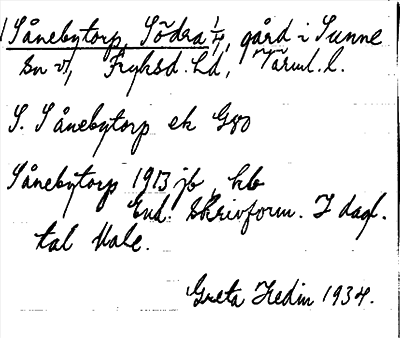 Sånebytorp, Södra 1/4, gård i Sunne
sn v, Fryksd. hd, Värml. l.
S. Sånebytorp ek G80
Sånebytorp 1913 jb, hb
End. skrivform. I dagl.
tal Male.
Greta Hedin 1934.